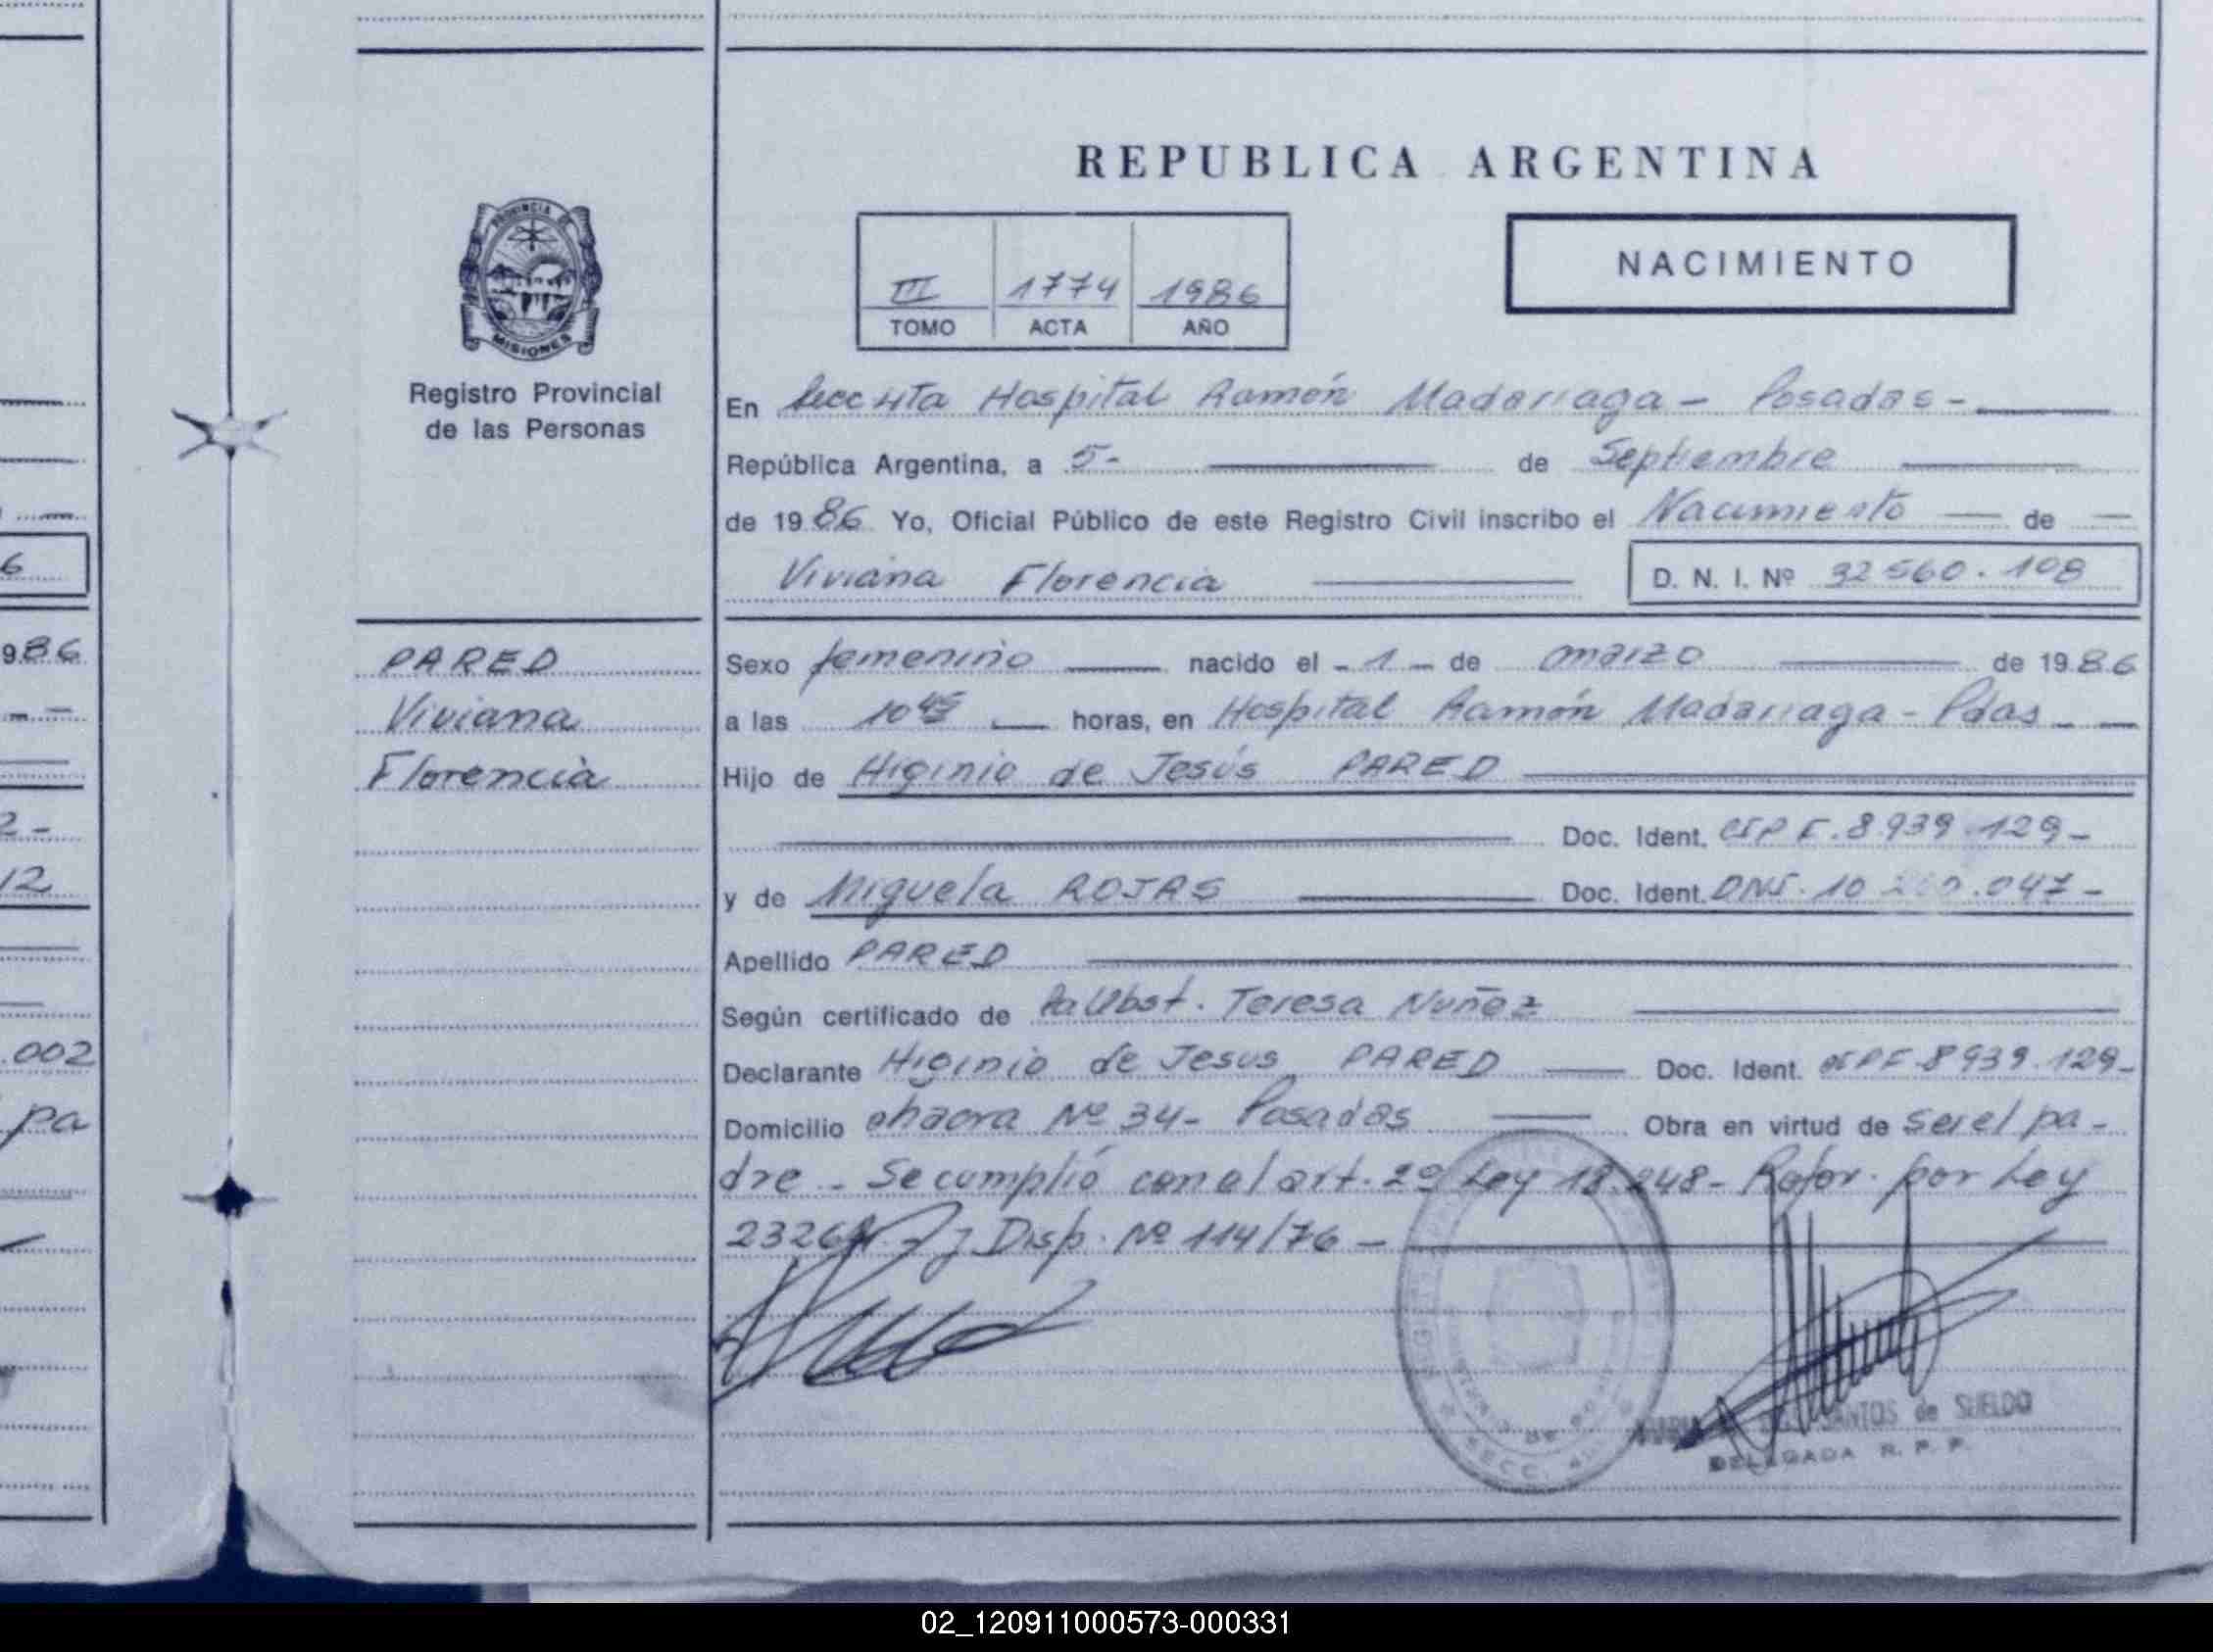 REPUBLICA ARGENTINA
PROVINCIA DE
MISIONES
Registro Provincial
de las Personas
III 1774 1986
TOMO ACTA AÑO
NACIMIENTO
En Secc 4ta Hospital Ramón Madariaga - Posadas -
República Argentina, a 5- de Septiembre
de 1986 Yo, Oficial Público de este Registro Civil inscribo el Nacimiento de
Viviana Florencia D. N. I. Nº 32560.108
PARED
Viviana
Florencia
Sexo femenino nacido el - 1 - de marzo de 1986
a las 10 45 horas, en Hospital Ramón Madariaga - Pdas -
Hijo de Higinio de Jesús PARED
Doc. Ident. 8.939.129-
y de Miguela ROJAS Doc. Ident. DNI. 10 .047-
Apellido PARED
Según certificado de Teresa Nuñez
Declarante Higinio de Jesus PARED Doc. Ident. 8939.129-
Domicilio chacra Nº 34- Posadas Obra en virtud de ser el pa-
dre - Se cumplió con el art. 2º Ley 18.248- Refor. por Ley
Disp. Nº 114/76 -
SANTOS de SUELDO
DELEGADA R. P. P.
986
2-
12
.002
pa
6
02_120911000573-000331